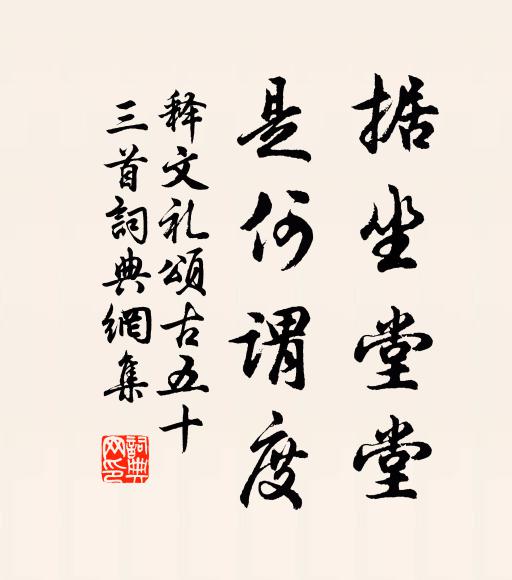 据坐堂堂
是何谓度
释文礼颂古五十
三首詞典網集
詞典网印